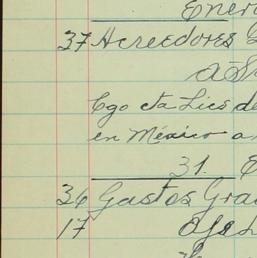 Enero
37 Acreedores G
a S
Cgo cta Lics de
en México a
31. E
36 Gastos Gra
17